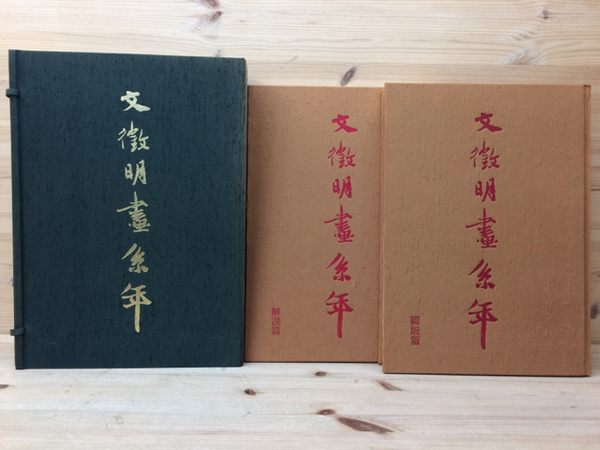 文徵明畫系年
文徵明畫系年
解説篇
文徵明畫系年
圖版篇